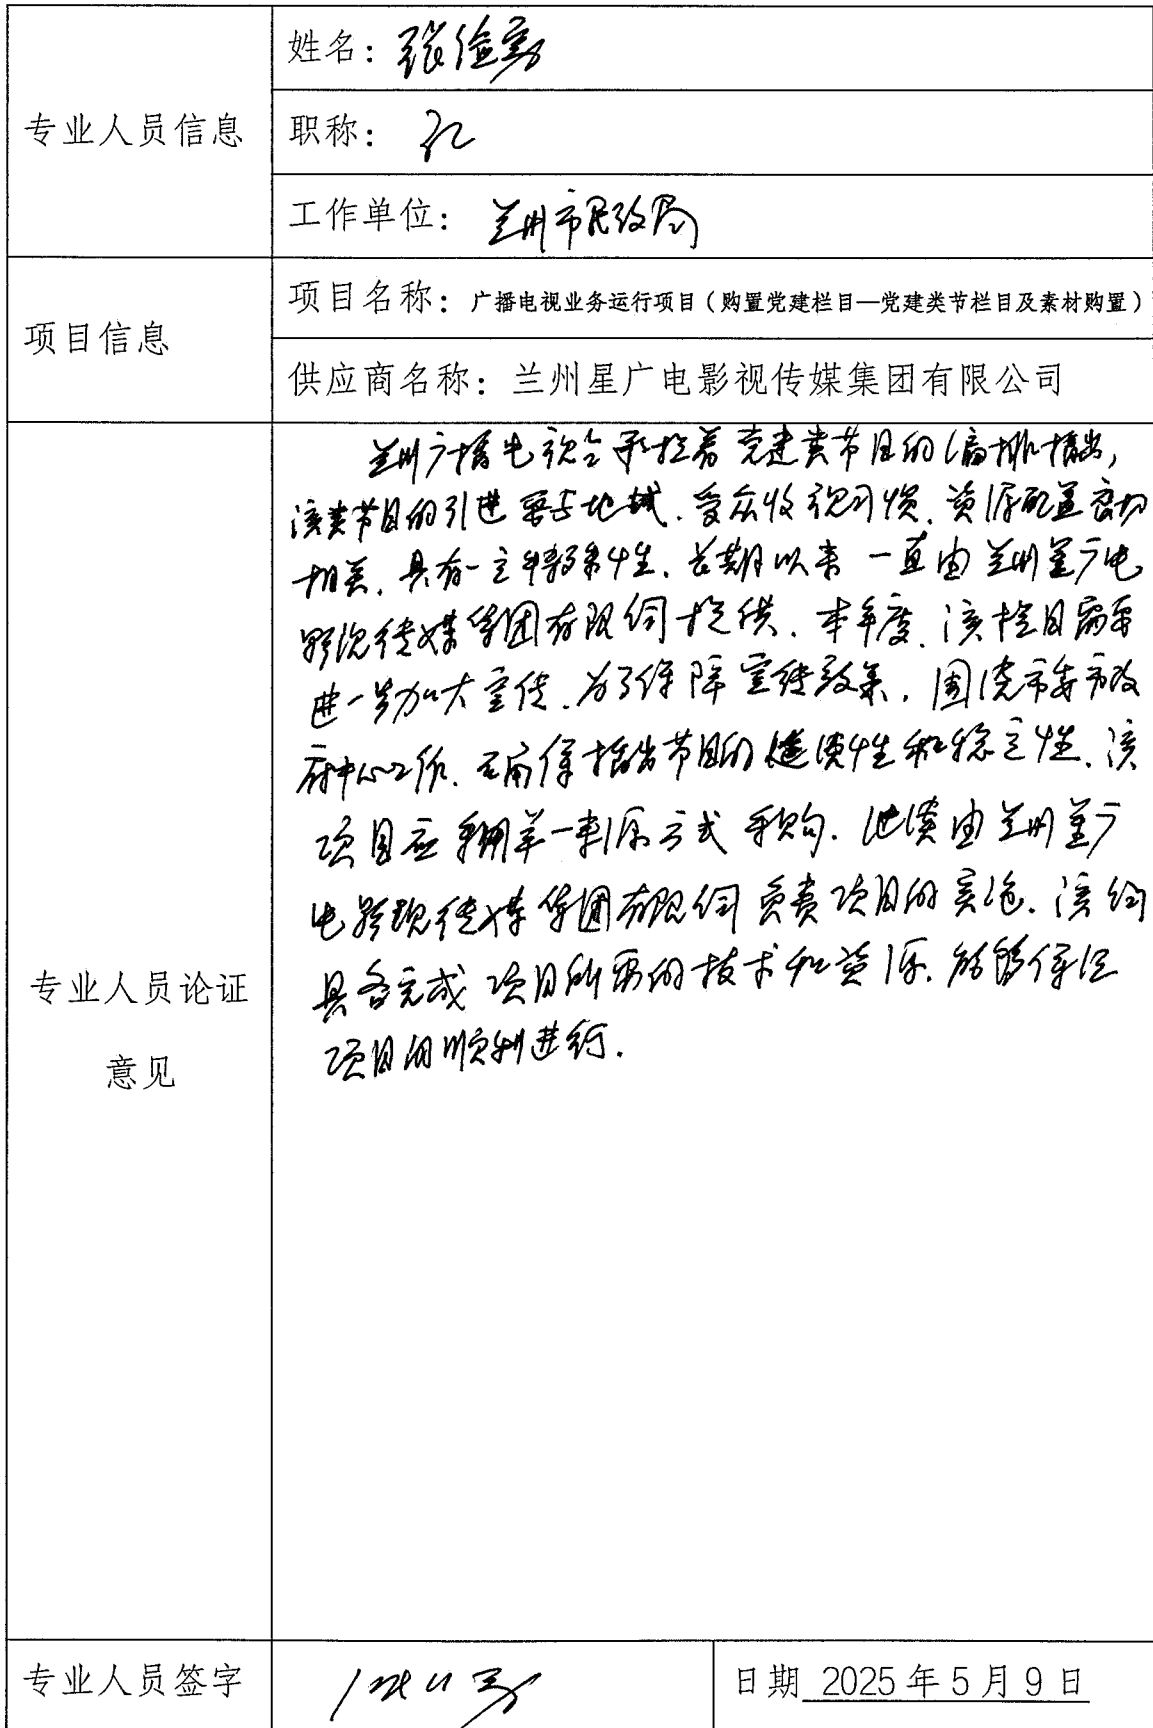 专业人员信息
姓名：张俭勤
职称：
工作单位：兰州市民政局
项目信息
项目名称：广播电视业务运行项目（购置党建栏目—党建类节栏目及素材购置）
供应商名称：兰州星广电影视传媒集团有限公司
专业人员论证
意见
兰州广播电视台承担着党建类节目的编排播出，
该类节目的引进要与地域、受众收视习惯、资源配置密切
相关，具有一定特殊性，长期以来一直由兰州星广电
影视传媒集团有限公司提供，本年度，该栏目需要
进一步加大宣传，为了保障宣传效果，围绕市委市政
府中心工作，确保播出节目的连续性和稳定性，该
项目应采用单一来源方式采购，继续由兰州星广
电影视传媒集团有限公司负责项目的实施，该公司
具备完成项目所需的技术和资源，能够保证
项目的顺利进行.
专业人员签字
日期 2025年5月9日